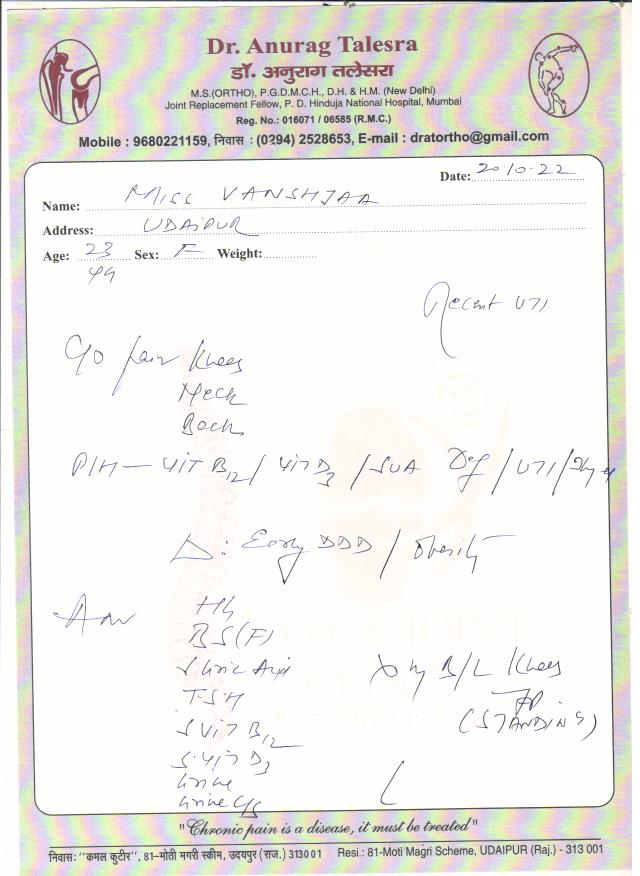 Dr. Anurag Talesra
डॉ. अनुराग तलेसरा
M.S.(ORTHO), P.G.D.M.C.H., D.H. & H.M. (New Delhi)
Joint Replacement Fellow, P. D. Hinduja National Hospital, Mumbai
Reg. No.: 016071 / 06585 (R.M.C.)
Mobile : 9680221159, निवास : (0294) 2528653, E-mail : dratortho@gmail.com
Date: 20.10.22
Name: MISS VANSHJAA
Address: UDAIPUR
Age: 23 Sex: F Weight:
Recent UTI
C/o pain Knees
Neck
Back
P/H - VIT B12 / VIT D3 / SUA Def / UTI /
Δ: Early DDD / Obesity
Adv Hb
BS(F)
S Uric Acid
TSH
S VIT B12
S. VIT D3
Urine
Urine C/S
X ray B/L Knees
AP
(STANDING)
ONE & JOINT
CLINIC
"Chronic pain is a disease, it must be treated"
निवास: "कमल कुटीर", 81-मोती मगरी स्कीम, उदयपुर (राज.) 313001 Resi.: 81-Moti Magri Scheme, UDAIPUR (Raj.) - 313 001